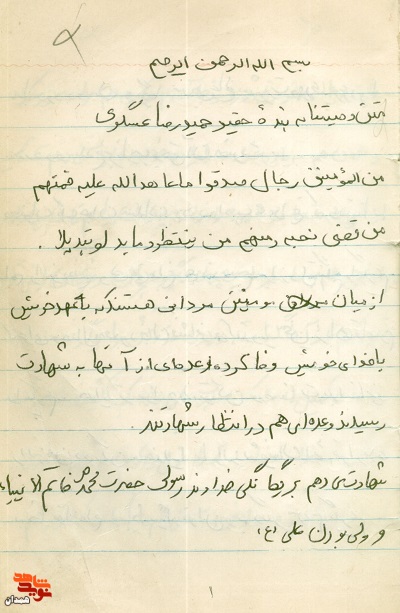 بسم الله الرحمن الرحیم
متن وصیتنامه بندهٔ حقیر حمیدرضا عسگری
من المؤمنین رجال صدقوا ما عاهد الله علیه فمنهم
من قضی نحبه و منهم من ینتظر و ما بدلو تبدیلا .
از میان مومنین مردانی هستند که به تعهد خویش
با خدای خویش وفا کرده و عده‌ای از آنها به شهادت
رسیدند و عده‌ای هم در انتظار شهادتند.
شهادت می دهم بر یگانگی خداوند رسولی حضرت محمد ص خاتم الانبیاء
و ولی بودن علی (ع)
۱
شاهد
نوید
همدان